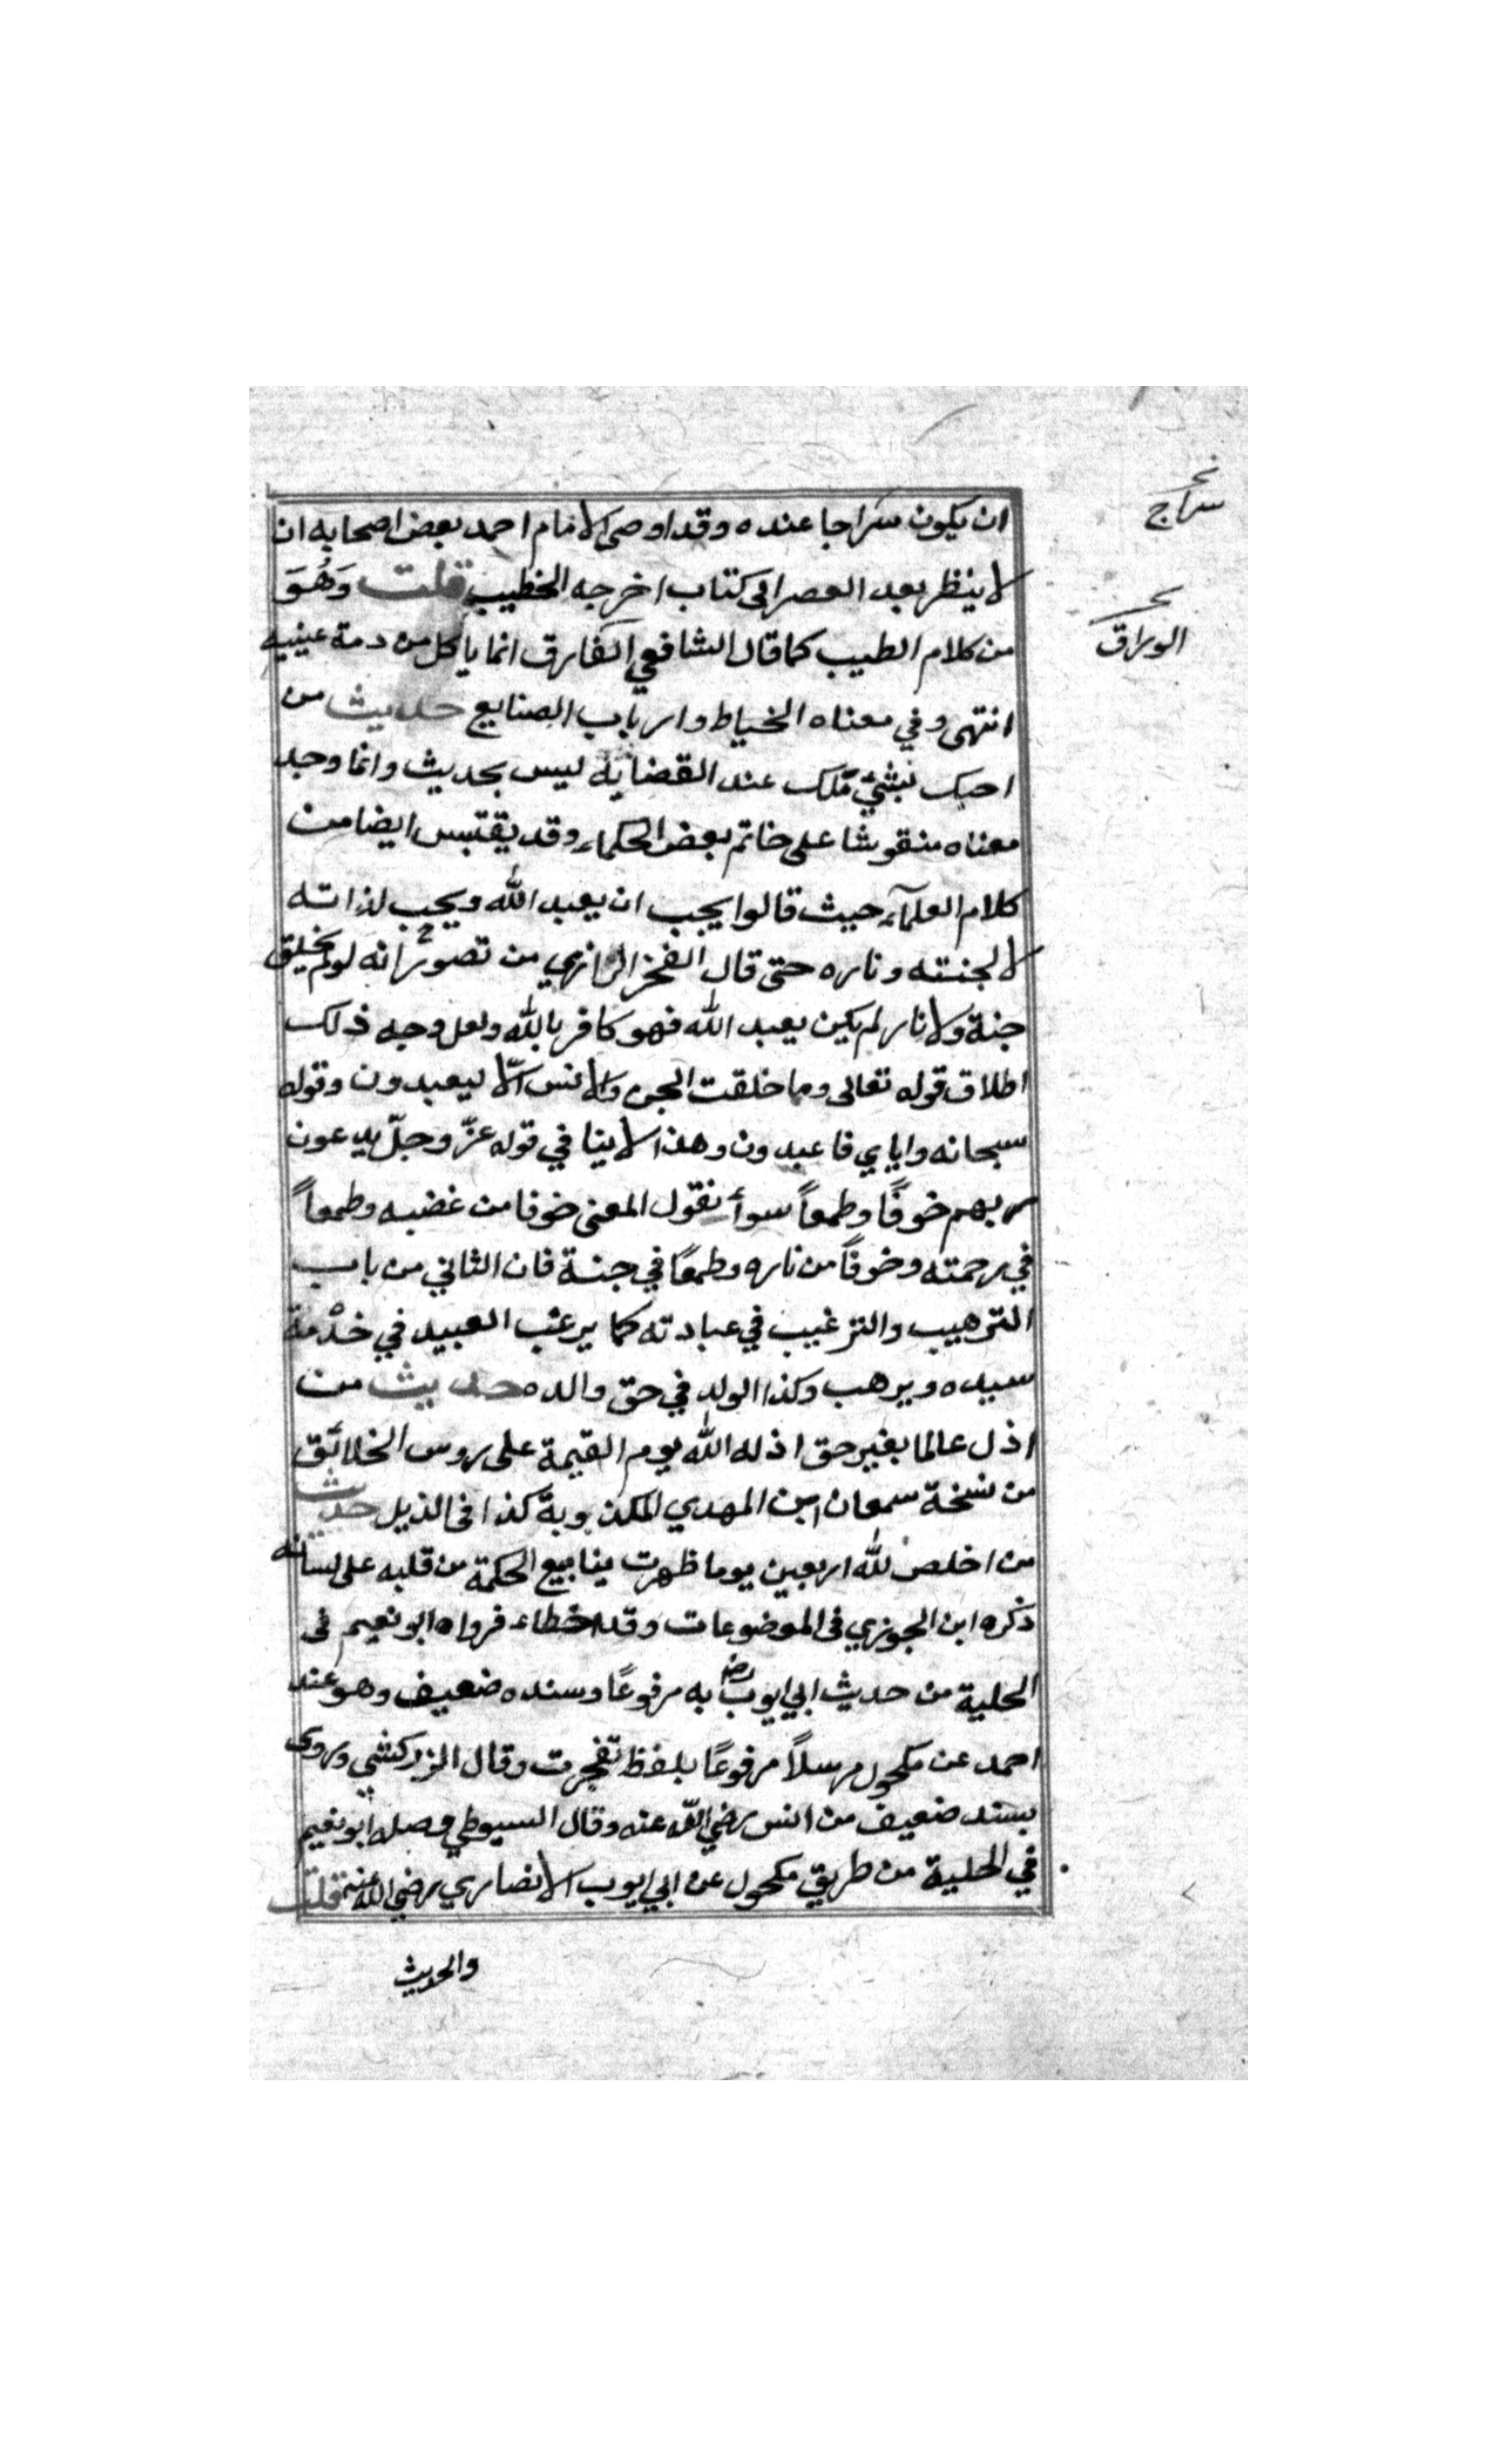 ان يكون سراجا عنده وقد اوصى الامام احمد بعض اصحابه ان
لا ينظر بعد العصر الى كتاب اخرجه الخطيب قلت وَهُوَ
من كلام الطيب كما قال الشافعي انما ياكل من دمة عينيه
انتهى وفي معناه الخياط وارباب الصنايع حديث من
احبك لشيء ملك عند انقضايه ليس بحديث وانما وجد
معناه منقوشا على خاتم بعض الحكماء وقد يقتبس ايضا من
كلام العلمآء حيث قالوا يجب ان يعبد الله ويجب لذاته
لا لجنته وناره حتى قال الفخر الرازي من تصور انه لو لم يخلق
جنة ولا نار لم يكن يعبد الله فهو كافر بالله ولعل وجه ذلك
اطلاق قوله تعالى وما خلقت الجن والانس الّا ليعبدون وقوله
سبحانه واياي فاعبدون وهذا لا ينافي قوله عزّ وجلّ يدعون
ربهم خوفًا وطمعاً سوأ نقول المعنى خوفا من غضبه وطمعاً
في رحمته وخوفاً من ناره وطمعًا في جنة فان الثاني من باب
الترهيب والترغيب في عبادته كما يرغب العبيد في خدْمة
سيده ويرهب وكذا الولد في حق والده حديث من
اذل عالما بغير حق اذله الله يوم القيمة على روس الخلائق
من نسخة سمعان ابن المهدي المكذوبة كذا فى الذيل حديث
من اخلص لله اربعين يوما ظهرت ينابيع الحكمة من قلبه على لسانه
ذكره ابن الجوزي فى الموضوعات وقد اخطاء فرواه ابو نعيم فى
الحلية من حديث ابي ايوب رض به مرفوعًا وسنده ضعيف وهو عند
احمد عن مكحول مرسلاً مرفوعًا بلفظ تفجرت وقال الزركشي وروى
بسند ضعيف من انس رضي الله عنه وقال السيوطي وصله ابو نعيم
في الحلية من طريق مكحول عن ابي ايوب الانصاري رضي الله عنه قلت
والحديث
سراج
الوراق